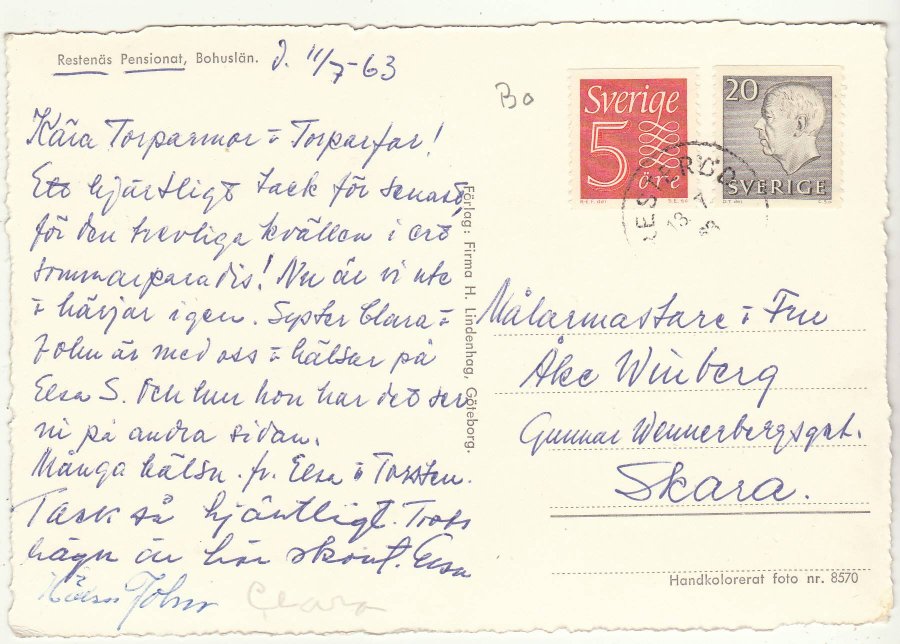 Restenäs Pensionat, Bohuslän.
d. 11/7-63
Kära Torparmor & Torparfar!
Ett hjärtligt tack för senast,
för den trevliga kvällen i ert
sommarparadis! Nu är vi ute
& härjar igen. Syster Clara &
John är med oss & hälsar på
Elsa S. Och hur hon har det ser
ni på andra sidan.
Många hälsn. fr. Elsa & Torsten.
Tack så hjärtligt. Trots
regn är här skönt. Elsa
Hälsn John Clara
Förlag: Firma H. Lindenhag, Göteborg.
Bo
Sverige
5
öre
20
SVERIGE
13 7
Målarmästare & Fru
Åke Winberg
Gunnar Wennerbergsgat.
Skara.
Handkolorerat foto nr. 8570